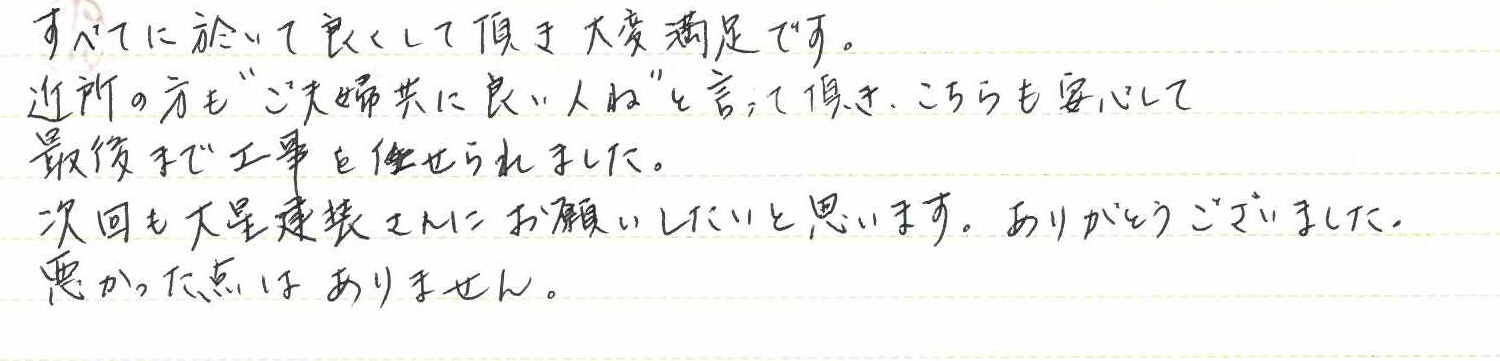 すべてに於いて良くして頂き大変満足です。
近所の方も"ご夫婦共に良い人ね"と言って頂き、こちらも安心して
最後まで工事を任せられました。
次回も大星建装さんにお願いしたいと思います。ありがとうございました。
悪かった点はありません。